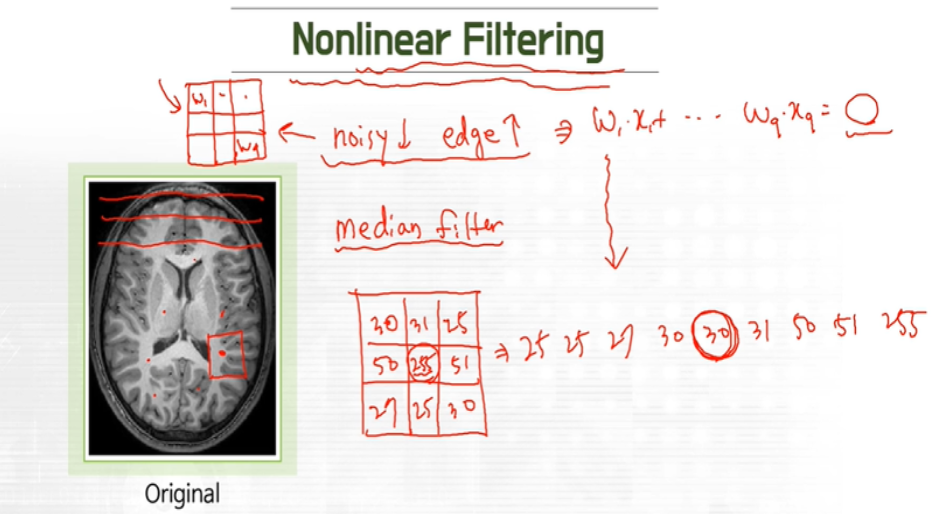 Nonlinear Filtering
w₁ - .
w₉
← noisy↓ edge↑ ⇒ w₁·x₁+ ... w₉·x₉ = ○
median filter
30 31 25
50 255 51
27 25 30
⇒ 25 25 27 30 30 31 50 51 255
Original